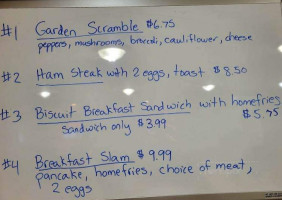 #1 Garden Scramble $6.75
peppers, mushrooms, broccoli, cauliflower, cheese
#2 Ham Steak with 2 eggs, toast $8.50
#3 Biscuit Breakfast Sandwich with homefries
Sandwich only $3.99 $5.95
#4 Breakfast Slam $9.99
pancake, homefries, choice of meat,
2 eggs